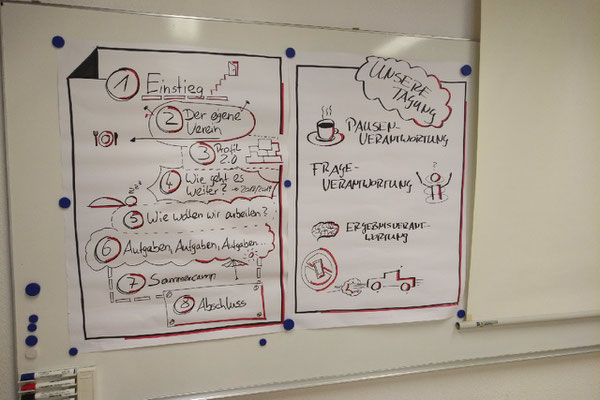 1 Einstieg
2 Der eigene
Verein
3 Profil
2.0
4 Wie geht es
weiter? → 2018/2019
5 Wie wollen wir arbeiten?
6 Aufgaben, Aufgaben, Aufgaben...
7 Sommercamp
8 Abschluss
UNSERE
TAGUNG
PAUSEN-
VERANTWORTUNG
FRAGE-
VERANTWORTUNG
?
ERGEBNISVERANT-
WORTUNG